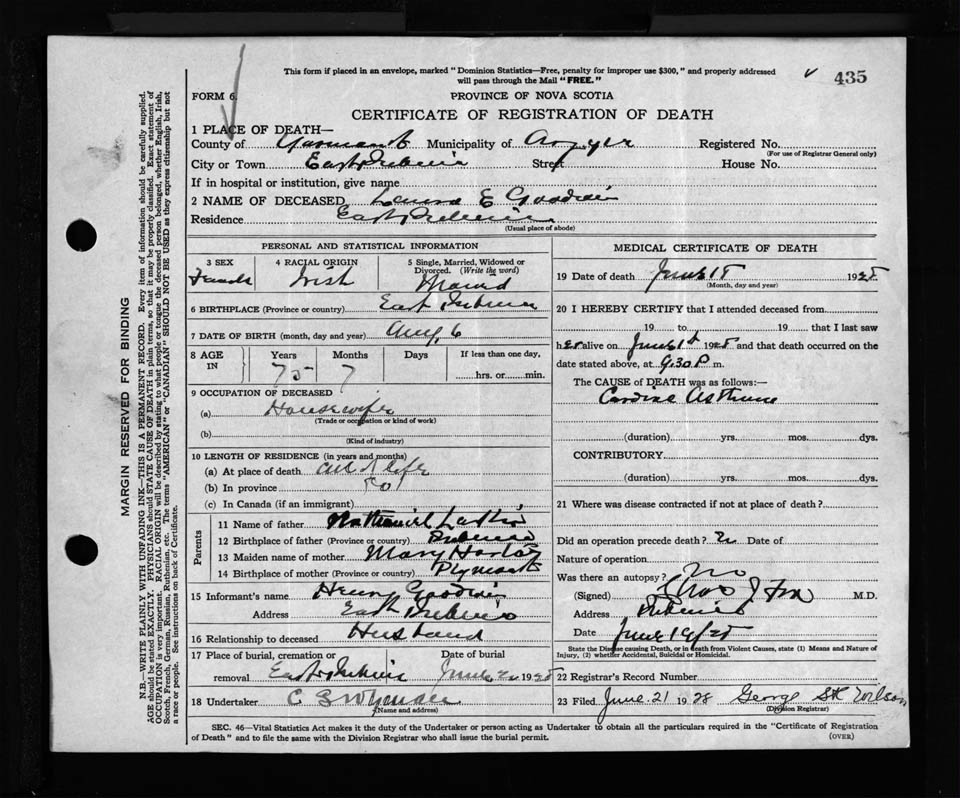 This form if placed in an envelope, marked "Dominion Statistics—Free, penalty for improper use $300," and properly addressed
will pass through the Mail "FREE."
435
FORM 6.
PROVINCE OF NOVA SCOTIA
CERTIFICATE OF REGISTRATION OF DEATH
1 PLACE OF DEATH—
County of Yarmouth Municipality of Argyle Registered No.
(For use of Registrar General only)
City or Town East Street House No.
If in hospital or institution, give name
2 NAME OF DECEASED E Goodwin
Residence East
(Usual place of abode)
PERSONAL AND STATISTICAL INFORMATION
3 SEX Female
4 RACIAL ORIGIN Irish
5 Single, Married, Widowed or Divorced. (Write the word) Married
6 BIRTHPLACE (Province or country) East
7 DATE OF BIRTH (month, day and year) Aug, 6
8 AGE IN Years Months Days If less than one day,
75 7 hrs. or min.
9 OCCUPATION OF DECEASED
(a) Housewife
(Trade or occupation or kind of work)
(b)
(Kind of industry)
10 LENGTH OF RESIDENCE (in years and months)
(a) At place of death all of life
(b) In province
(c) In Canada (if an immigrant)
Parents
11 Name of father Nathaniel
12 Birthplace of father (Province or country)
13 Maiden name of mother Mary
14 Birthplace of mother (Province or country) Plymouth
15 Informant's name Henry Goodwin
Address East
16 Relationship to deceased Husband
17 Place of burial, cremation or removal East
Date of burial June 1928
18 Undertaker C S
(Name and address)
MEDICAL CERTIFICATE OF DEATH
19 Date of death June 18 1928
(Month, day and year)
20 I HEREBY CERTIFY that I attended deceased from
19 to 19 that I last saw
her alive on June 1928 and that death occurred on the
date stated above, at 9.30 P m.
The CAUSE of DEATH was as follows:—
Cardiac Asthma
(duration) yrs. mos. dys.
CONTRIBUTORY
(duration) yrs. mos. dys.
21 Where was disease contracted if not at place of death?
Did an operation precede death? Date of
Nature of operation
Was there an autopsy? No
(Signed) M.D.
Address
Date June 19/28
State the Disease causing Death, or in death from Violent Causes, state (1) Means and Nature of
Injury, (2) whether Accidental, Suicidal or Homicidal.
22 Registrar's Record Number
23 Filed June 21 1928 George
(Division Registrar)
SEC. 46—Vital Statistics Act makes it the duty of the Undertaker or person acting as Undertaker to obtain all the particulars required in the "Certificate of Registration
of Death" and to file the same with the Division Registrar who shall issue the burial permit.
(OVER)
MARGIN RESERVED FOR BINDING
N.B.—WRITE PLAINLY WITH UNFADING INK—THIS IS A PERMANENT RECORD. Every item of information should be carefully supplied.
AGE should be stated EXACTLY. PHYSICIANS should STATE CAUSE OF DEATH in plain terms, so that it may be properly classified. Exact statement of
OCCUPATION is very important. RACIAL ORIGIN will be described by stating to what people or tongue the deceased person belonged, whether English, Irish,
Scotch, French, German, Russian, Ruthenian, etc. The terms "AMERICAN" or "CANADIAN" SHOULD NOT BE USED as they express citizenship but not
a race or people. See instructions on back of Certificate.